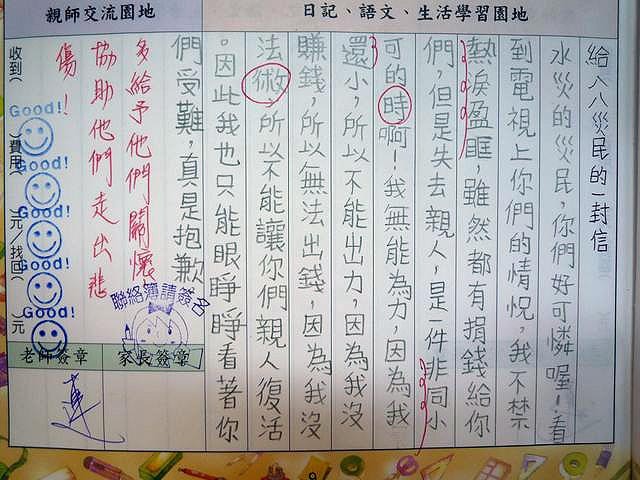 日記、語文、生活學習園地
給八八災民的一封信
水災的災民,你們好可憐喔!看
到電視上你們的情況,我不禁
熱淚盈眶,雖然都有捐錢給你
們,但是失去親人,是一件非同小
可的時啊!我無能為力,因為我
還小,所以不能出力,因為我沒
賺錢,所以無法出錢,因為我沒
法術,所以不能讓你們親人復活
。因此我也只能眼睜睜看著你
們受難,真是抱歉
親師交流園地
多給予他們關懷
協助他們走出悲
傷!
聯絡簿請簽名
Good!
Good!
Good!
Good!
Good!
收到( )費用( )元/找回( )元
老師簽章
家長簽章
9